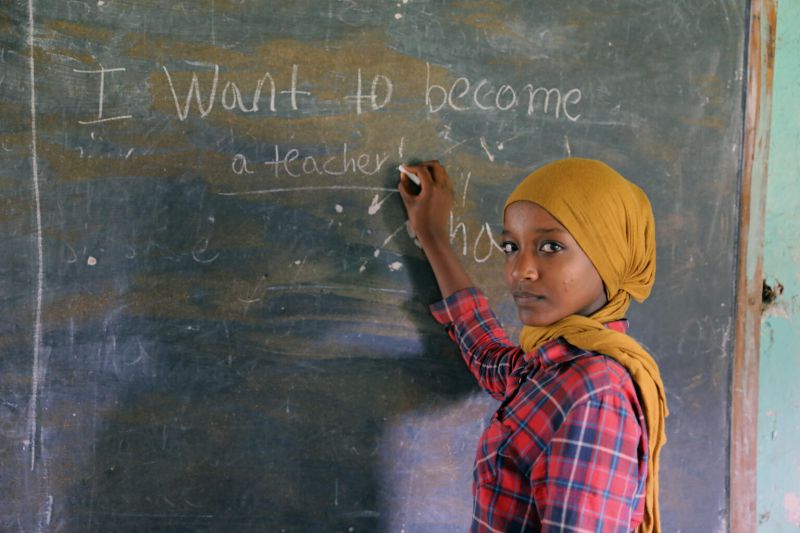 I Want to become
a teacher!